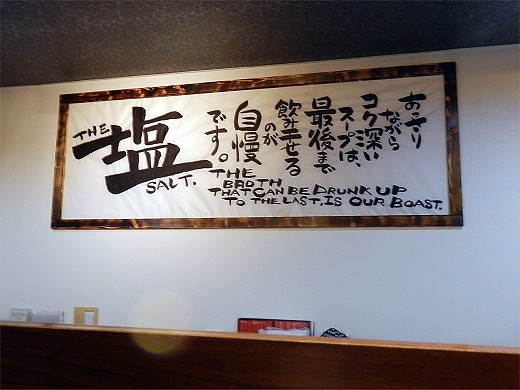 あっさり
ながら
コク深い
スープは、
最後まで
飲みほせる
のが
自慢
です。
THE
塩
SALT.
THE
BROTH
THAT CAN BE DRUNK UP
TO THE LAST, IS OUR BOAST.